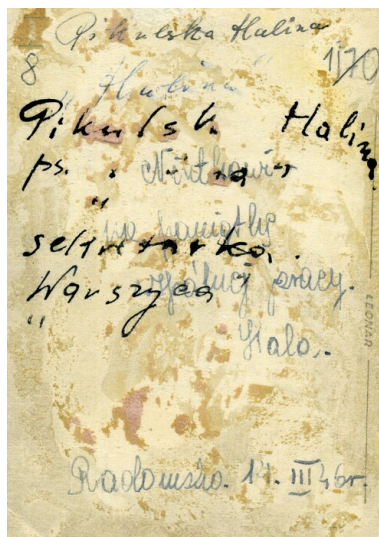 Pikulska Halina
8
1/70
„Halina"
Pikulsk. Halina
ps.
na pamiątkę
sekretarka.
wspólnej pracy.
Warszyca
"
Hala.
LEONAR
Radomsko. 14. III 46r.